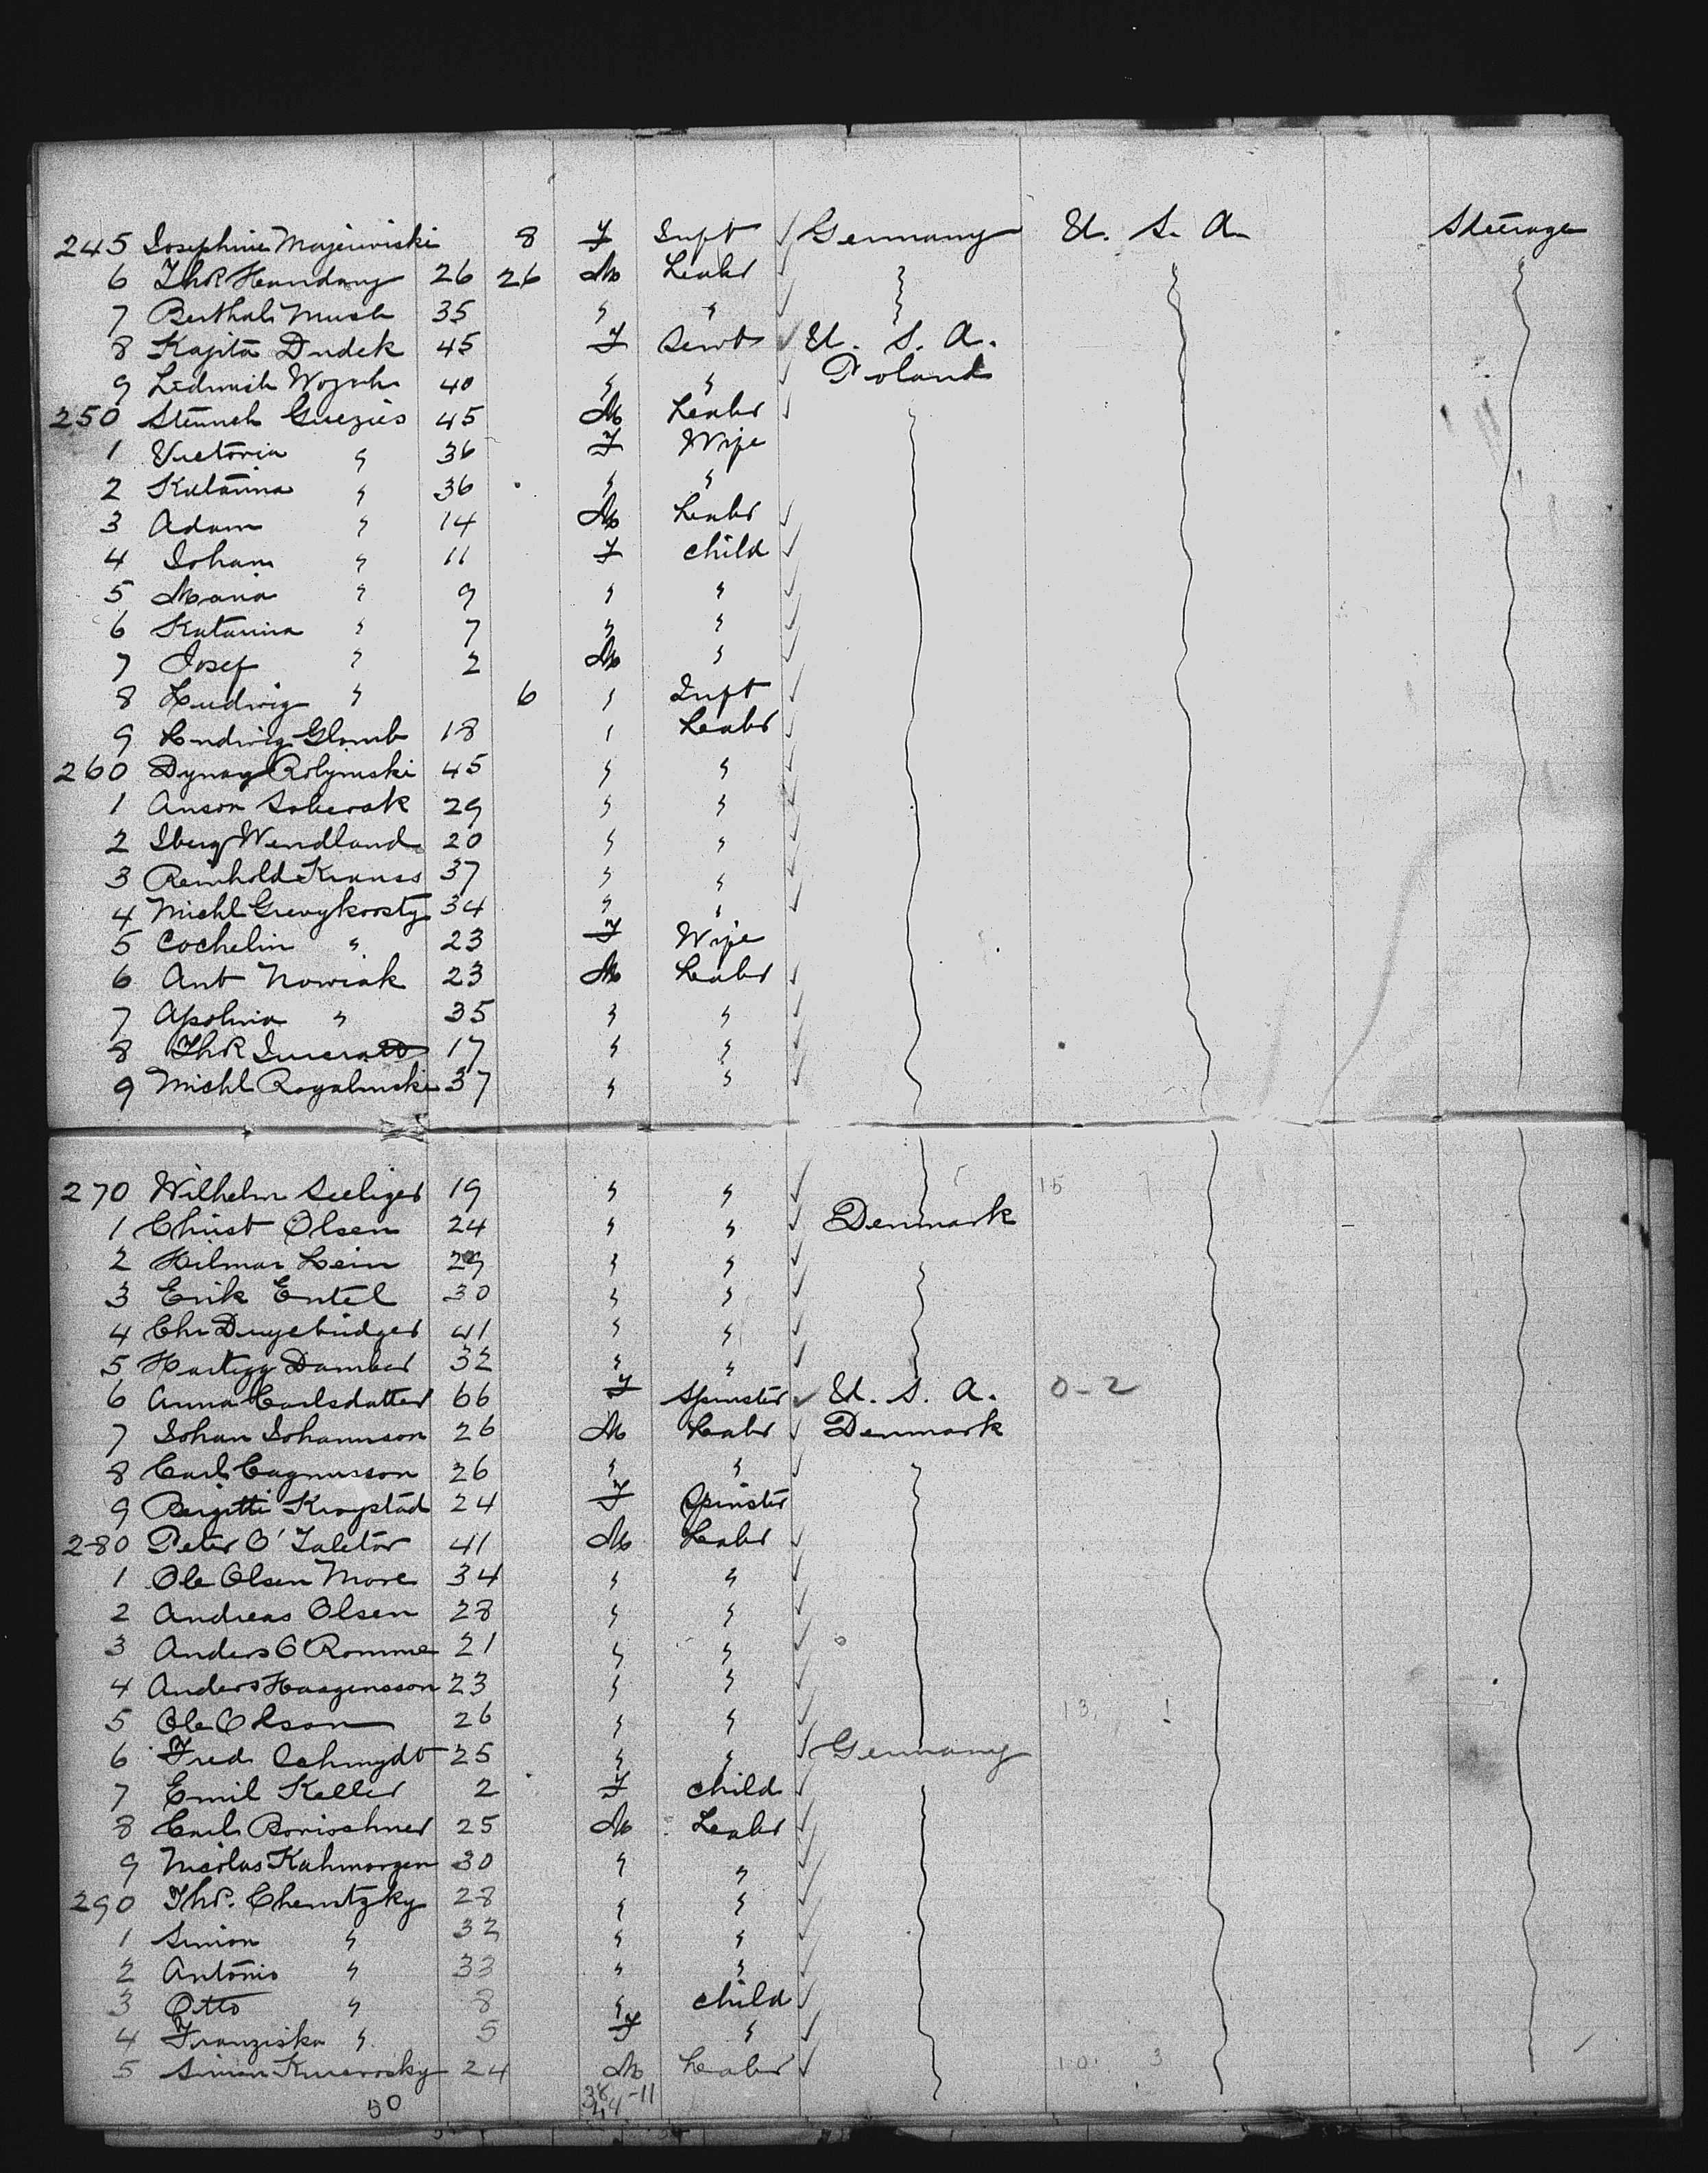 245 Josephine Majewiski 8 F Inft ✓ Germany U. S. A. Steerage
6 Thk Handony 26 26 M Labr ✓
7 Berthah Mush 35 " " ✓
8 Kajita Dudek 45 F Servt ✓ U. S. A.
9 Ledwich Wozuh 40 " " ✓ Poland
250 Stennch Guezies 45 M Labr ✓
1 Victoria " 36 F Wife
2 Katarina " 36 " "
3 Adam " 14 M Labr ✓
4 Joham " 11 F child ✓
5 Maria " 9 " " ✓
6 Katarina " 7 " " ✓
7 Josef " 2 M " ✓
8 Ludwig " 6 " Inft ✓
9 Ludwig Glomb 18 " Labr ✓
260 Dynag Rolymski 45 " " ✓
1 Anson Soberak 29 " " ✓
2 Iberg Wendland 20 " " ✓
3 Reinhold Krauss 37 " " ✓
4 Michl Grevykoosty 34 " " ✓
5 Cochelin " 23 F Wife
6 Ant Nowiak 23 M Labr ✓
7 Apolnia " 35 " " ✓
8 Thk 17 " " ✓
9 Michl Rogalinski 37 " " ✓
270 Wilhelm Seeliger 19 " " ✓ 15
1 Christ Olsen 24 " " ✓ Denmark
2 Hilmar Hein 29 " " ✓
3 Erik Entel 30 " " ✓
4 Chr Duyebridger 41 " " ✓
5 Hartigg Damber 32 " " ✓
6 Anna Carlsdatter 66 F Spinster ✓ U. S. A. 0-2
7 Johan Johannson 26 M Labr ✓ Denmark
8 Carl Cagnusson 26 " " ✓
9 Bergitte Krogstad 24 F Spinster
280 Peter O' Taletor 41 M Labr ✓
1 Ole Olsen More 34 " " ✓
2 Andreas Olsen 28 " " ✓
3 Anders O Romme 21 " " ✓
4 Anders Haagensson 23 " " ✓
5 Ole Olson 26 " " ✓ 13
6 Fred Schmydt 25 " " ✓ Germany
7 Emil Keller 2 F child ✓
8 Carl Borioschner 25 M Labr ✓
9 Nicolas Kahmorgen 30 " " ✓
290 Thk. Chemtzky 28 " " ✓
1 Simon " 32 " " ✓
2 Antonio " 33 " " ✓
3 Otto " 8 " child ✓
4 Franziska " 5 F " ✓
5 Simon Kurowsky 24 M Labr ✓ 10. 3
50 38-11
44